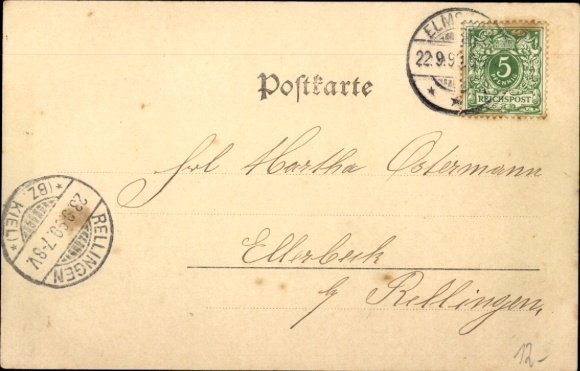 ELMS
22.9.9
5
REICHSPOST
Postkarte
Frl Martha Ostermann
RELLINGEN
23.9.99.7-8V.
*(BZ. KIEL)*
Ellerbeck
b/ Rellingen,
12-